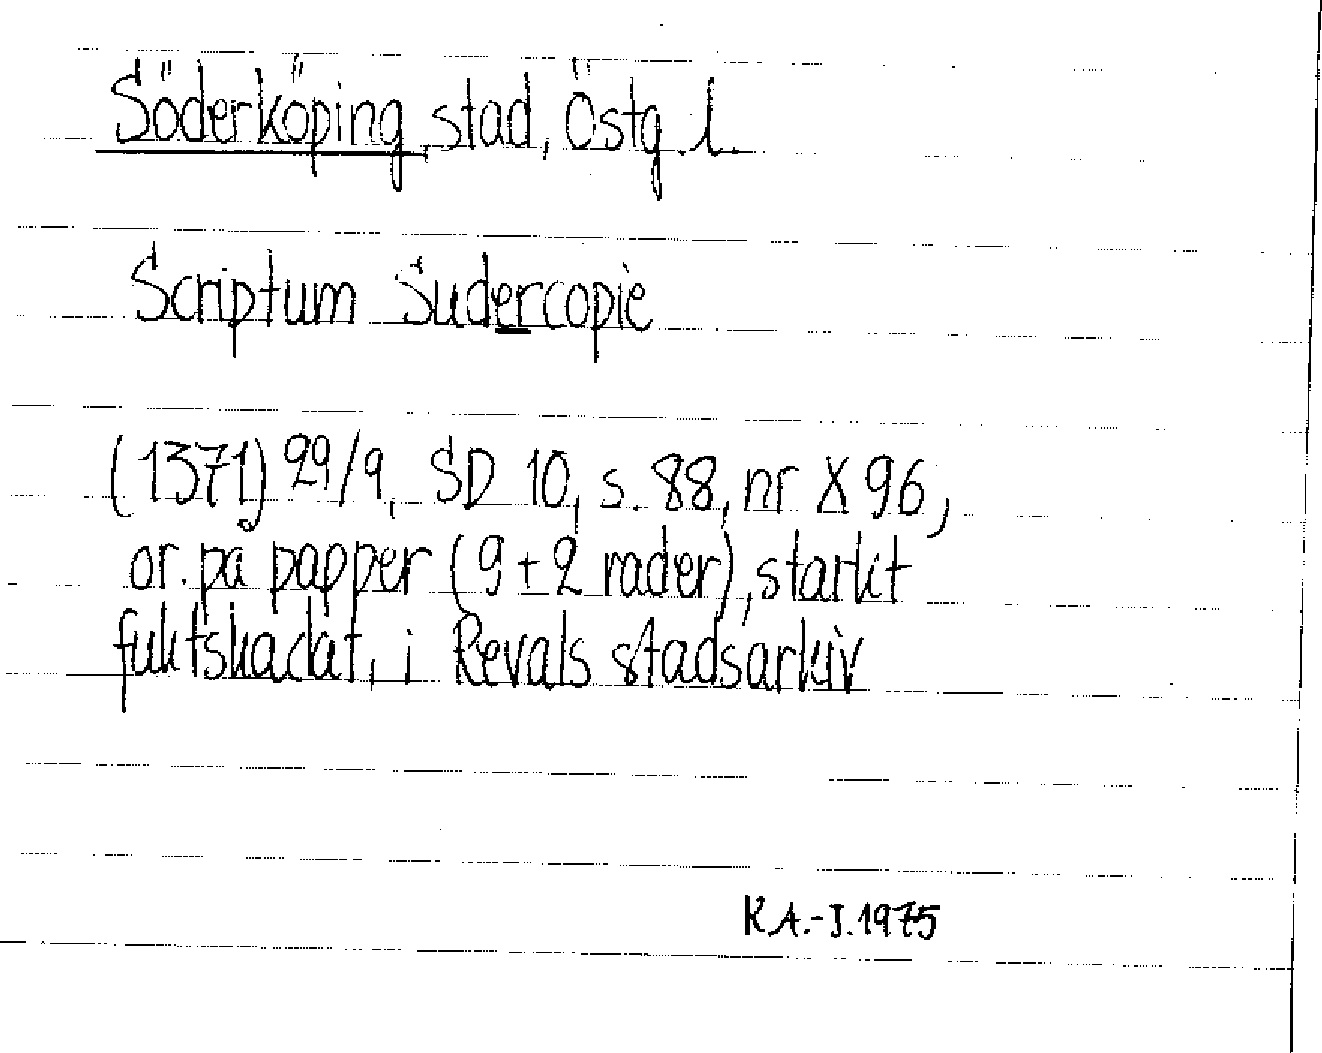 Söderköping, stad, Östg. l.
Scriptum Sudercopie
(1371) 29/9, SD 10, s. 88, nr X 96,
or. på papper (9 + 2 rader), starkt
fuktskadat, i Revals stadsarkiv
K.A.-J. 1975